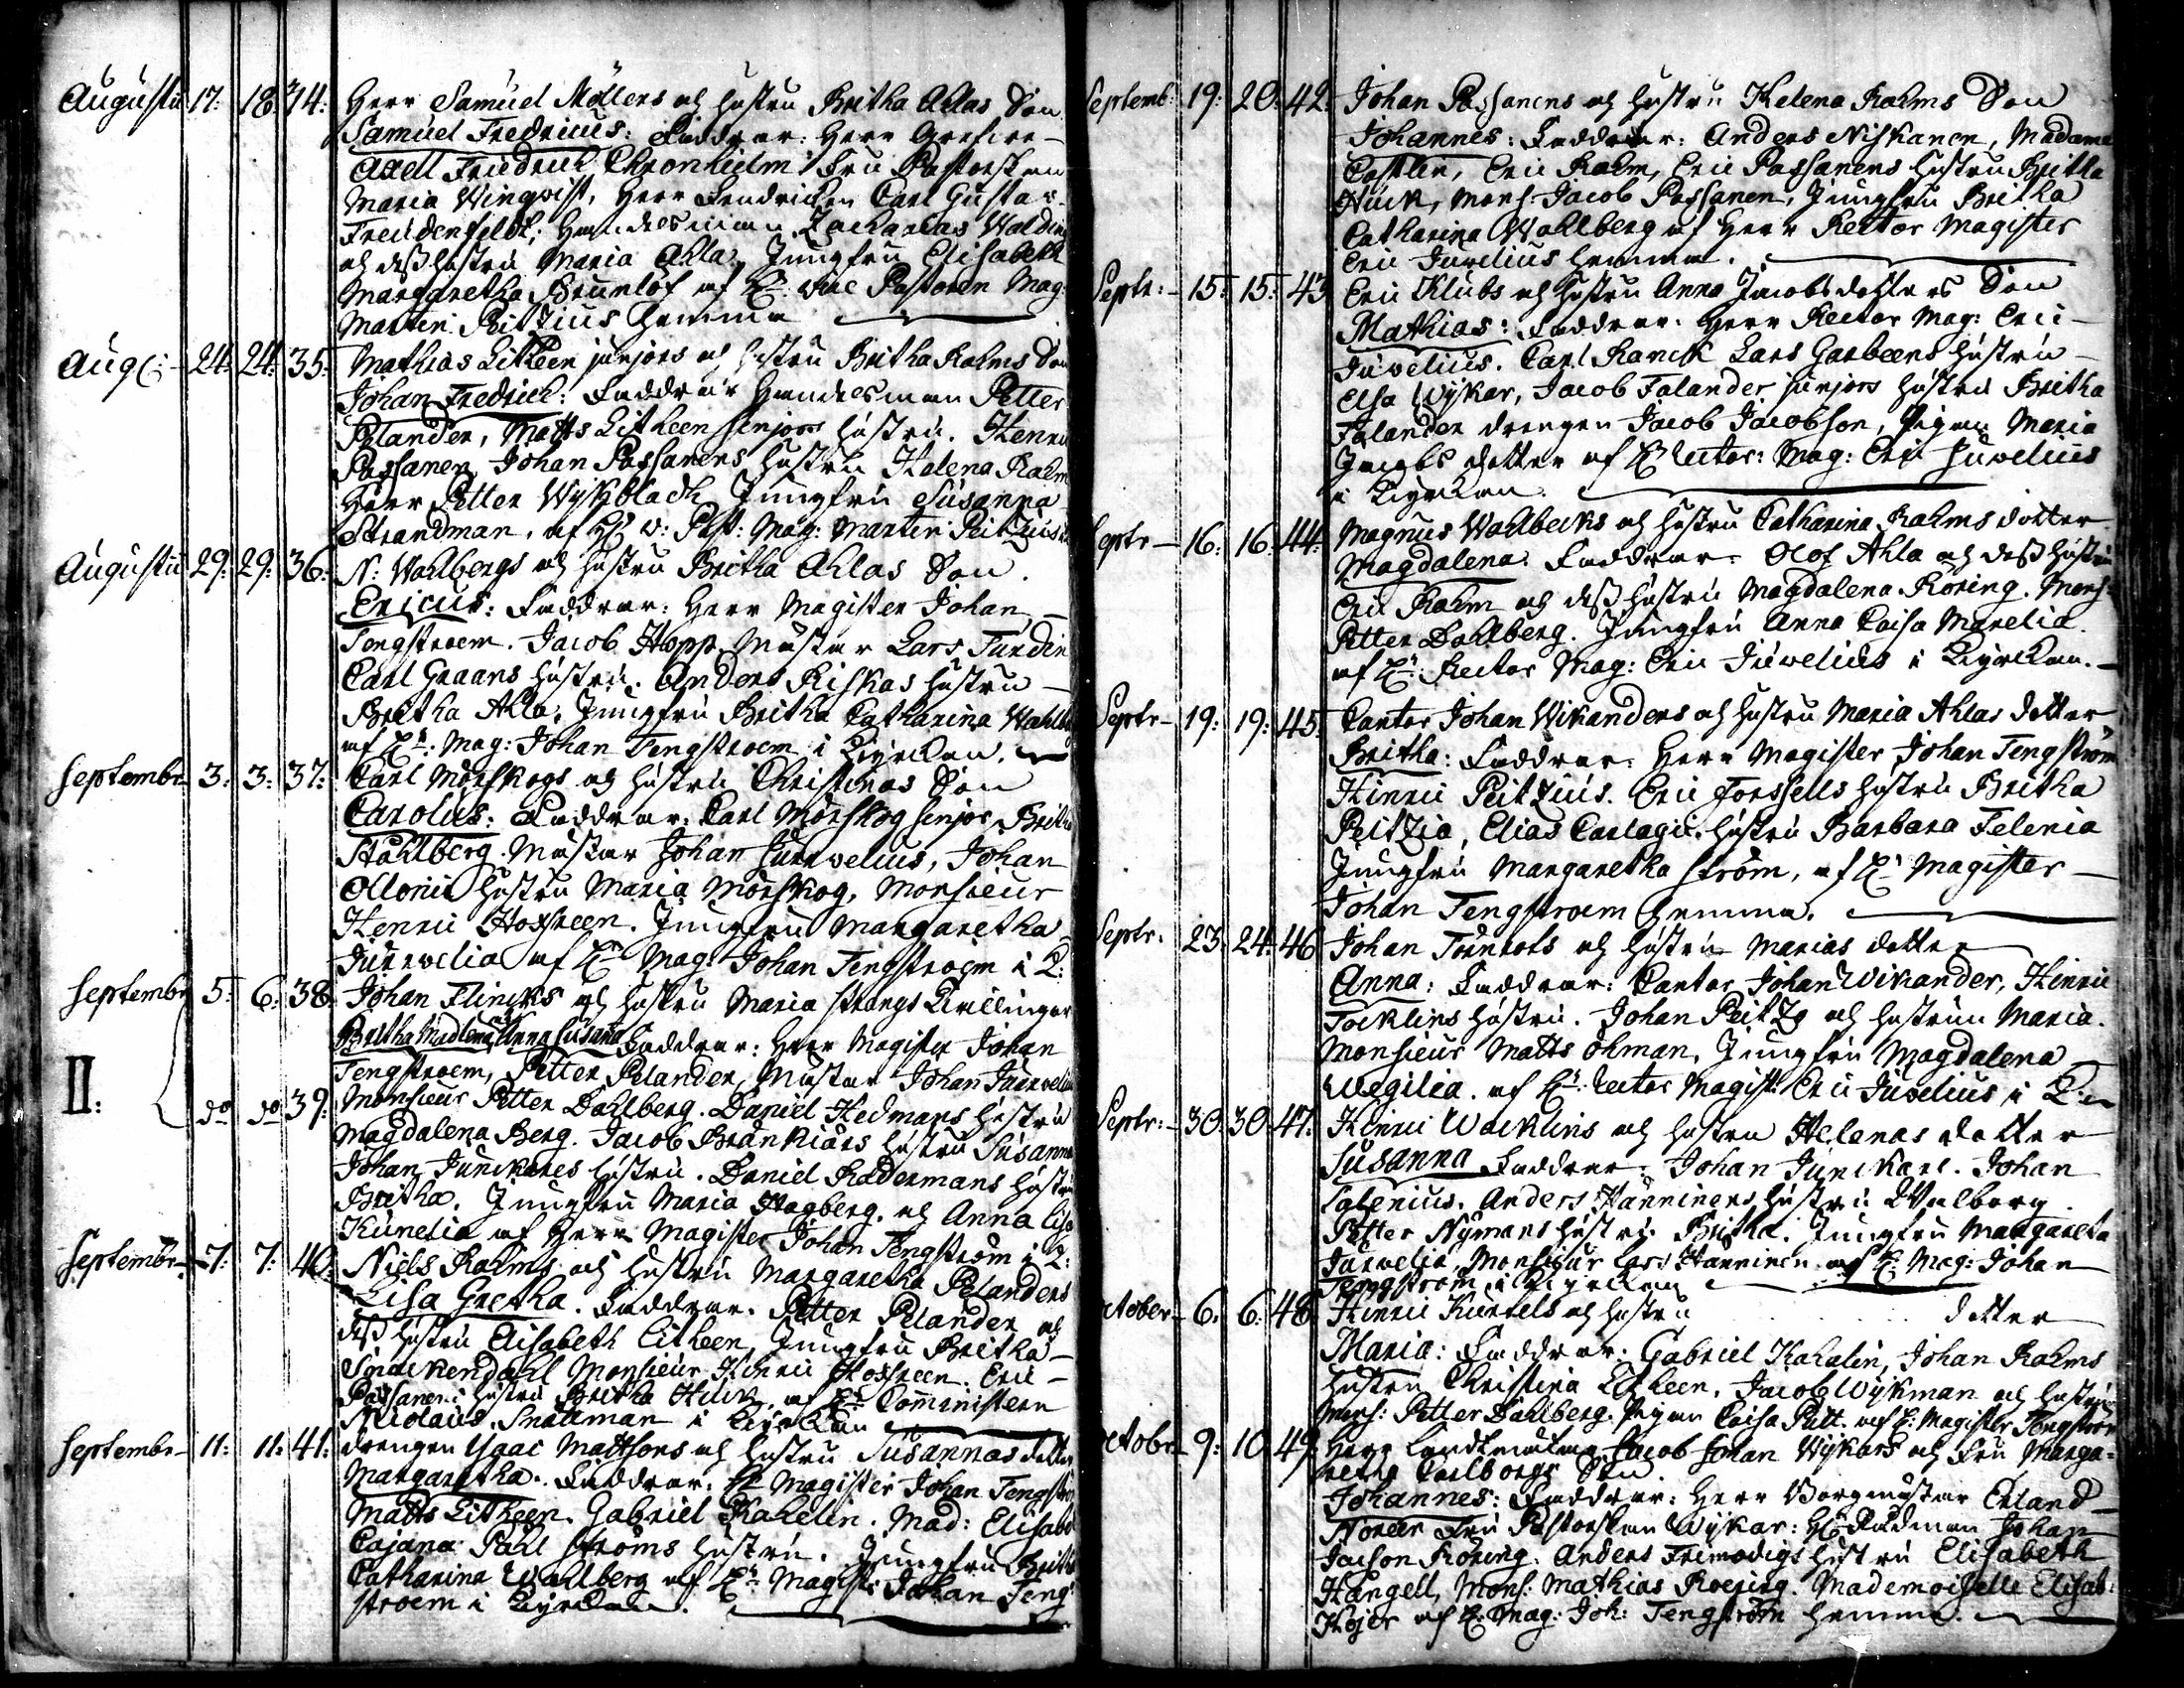 Augusti 17: 18: 34: Herr Samuel Möllers och hustru Britha Ahlas Son
Samuel Fredricus: Faddrar: Herr
Axell Friedrich Chronhielm Fru Pastorskan
Maria Wingqvist, Herr Fendricken Carl Gustav
Freüdenfeldt; Handelsman Zacharias Waldin
och dess hustru Maria Ahla. Jungfru Elisabeth
Margaretha Brunlöf af H: vice Pastoren Mag:
Marten Peitzius hemma
Aug: 24: 24: 35: Mathias Litheen junjors och hustru Britha Rahms Son
Johan Fredrich: Faddrar Handelsman Petter
Pelander, Matts Litheen senjors hustru. Henric
Passanen Johan Passanens hustru Halena Rahm
Herr Petter Wÿkbladh Jungfru Susanna
Strandman, af H: v: Past: Mag: Marten Peitzius
Augusti 29: 29: 36: N: Wahlbergs och hustru Britha Ahlas Son.
Ericus: Faddrar: Herr Magister Johan
Tengstroem. Jacob Hopp. Mästar Lars Tundin
Carl Graans hustru. Anders Riskas hustru
Britha Ahla. Jungfru Britha Catharina Wahlberg
af H: Mag: Johan Tengstroem i Kyrckan.
Septembr 3: 3: 37: Carl Mörskogs och hustru Christinas Son
Carolus: Faddrar: Carl Mörskog senjor, Britha
Ståhlberg. Mästar Johan Jurvelius, Johan
Ollonis hustru Maria Mörskog, Monsieur
Henric Hoffreen. Jungfru Margaretha
Jurvelia af H: Mag: Johan Tengstroem i K:
Septembr 5: 6: 38: Johan Flincks och hustru Maria Strangs Twillingar
Britha Madlena, Anna Susana Faddrar: Herr Magister Johan
Tengstroem, Petter Pelander, Mästar Johan Juervelius
II: do do 39: Monsieur Petter Dahlberg. Daniel Hedmans hustru
Magdalena Berg. Jacob Brankiärs hustru Susanna
Johan Junckares hustru. Daniel Radermans hustru
Britha. Jungfru Maria Hagberg. och Anna Lisa
Kunelia af Herr Magister Johan Tengström i K:
Septembr 7: 7: 40: Niels Rahms och hustru Margaretha Pelanders
Lisa Gretha. Faddrar. Petter Pelander och
dess hustru Elisabeth Litheen, Jungfru Britha
Snäckendahl Monsieur Henric Hoffreen. Eric
Passanens hustru Britha Huck, af H: Comministern
Nicolaus Snällman i Kyrckan
Septembr 11: 11: 41: drengen Isaac Mattsons och hustru Susannas dotter
Margaretha: Faddrar: H: Magister Johan Tengström
Matts Litheen. Gabriel Kahelin. Mad: Elisabet
Cajana Pahl Ströms hustru. Jungfru Britha
Catharina Wahlberg af H: Magist: Johan Teng
stroem i Kyrckan.
Septemb: 19: 20: 42: Johan Passanens och hustru Helena Rahms Son
Johannes: Faddrar: Anders Niskanen, Madame
Castlin, Eric Rahm, Eric Passanens hustru Britha
Huck, Mons: Jacob Passanen, Jungfru Britha
Catharina Wahlberg af Herr Rector Magister
Eric Juvelius hemma.
Septr: 15: 15: 43: Eric Klubs och hustru Anna Jacobs dotters Son
Mathias: Faddrar: Herr Rector Mag: Eric
Juvelius. Carl Ranck Lars Garbeens hustru
Elsa Wÿkar, Jacob Falander junjors hustru Britha
Falander drengen Jacob Jacobson, Pigan Maria
Jacobs dotter af H: Rector: Mag: Eric Juvelius
i Kyrckan.
Septr 16: 16: 44: Magnus Wahlbecks och hustru Catharina Rahms dotter
Magdalena: Faddrar: Olof Ahla och dess hustru
Eric Rahm och dess hustru Magdalena Röring. Mons:
Petter Dahlberg. Jungfru Anna Caisa Marelia.
af H: Rector Mag: Eric Juvelius i Kyrckan.
Septr 19: 19: 45: Cantor Johan Wikanders och hustru Maria Ahlas dotter
Britha: Faddrar: Herr Magister Johan Tengström
Hinric Peitzius. Eric Forssells hustru Britha
Peitzia, Elias Carlagii hustru Barbara Telenia
Jungfru Margaretha Ström, af H: Magister
Johan Tengstroem hemma.
Septr: 23: 24: 46: Johan Törnrots och hustru Marias dotter
Anna: Faddrar: Cantor Johan Wikander, Hinric
Tocklins hustru. Johan Peitzo och hustrun Maria.
Monsieur Matts Öhman, Jungfru Magdalena
Wegilia. af H: Rector Magist: Eric Juvelius i K:
Septr: 30: 30: 47: Hinric Wacklins och hustru Helenas dotter
Susanna Faddrar: Johan Junckare. Johan
Salenius. Anders Hanninens hustru Walborg.
Petter Nÿmans hustru Britha. Jungfru Margareta
Jurvelia, Monsieur Lars Hanninen af H: Mag: Johan
Tengström i Kyrckan
October 6: 6: 48: Hinric Kurtels och hustru dotter
Maria: Faddrar: Gabriel Kahalin, Johan Rahms
hustru Christina Litheen, Jacob Wÿkman och hustru
Mons: Petter Dahlberg. Pigan Caisa Pitt. af H: Magister Tengström
Octobr 9: 10: 49: Herr Jacob Johan Wÿkars och Fru Marga-
retha Carlborgs Son
Johannes: Faddrar: Herr Borgmästar Erland
Noreen Fru Pastorskan Wÿkar: H: Rådman Johan
Jacson Röring. Anders Frimodigs hustru Elisabeth
Hangell, Mons: Mathias Roering. Mademoiselle Elisab:
Höjer af H: Mag: Joh: Tengström hemma.